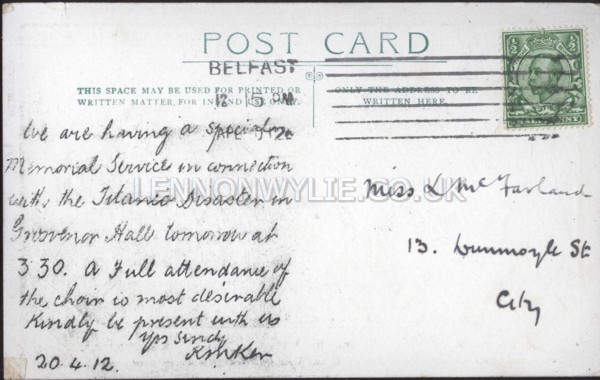 POST CARD
BELFAST
THIS SPACE MAY BE USED FOR PRINTED OR
WRITTEN MATTER FOR INLAND ONLY.
ONLY THE ADDRESS TO BE
WRITTEN HERE.
We are having a special
Memorial Service in connection
with the Titanic Disaster in
Grosvenor Hall tomorrow at
3 30. A Full attendance of
the choir is most desirable
Kindly be present with us
Yrs Sincly
20.4.12.
Miss L McFarland
13. Dunmoyle St
City
LENNONWYLIE.CO.UK